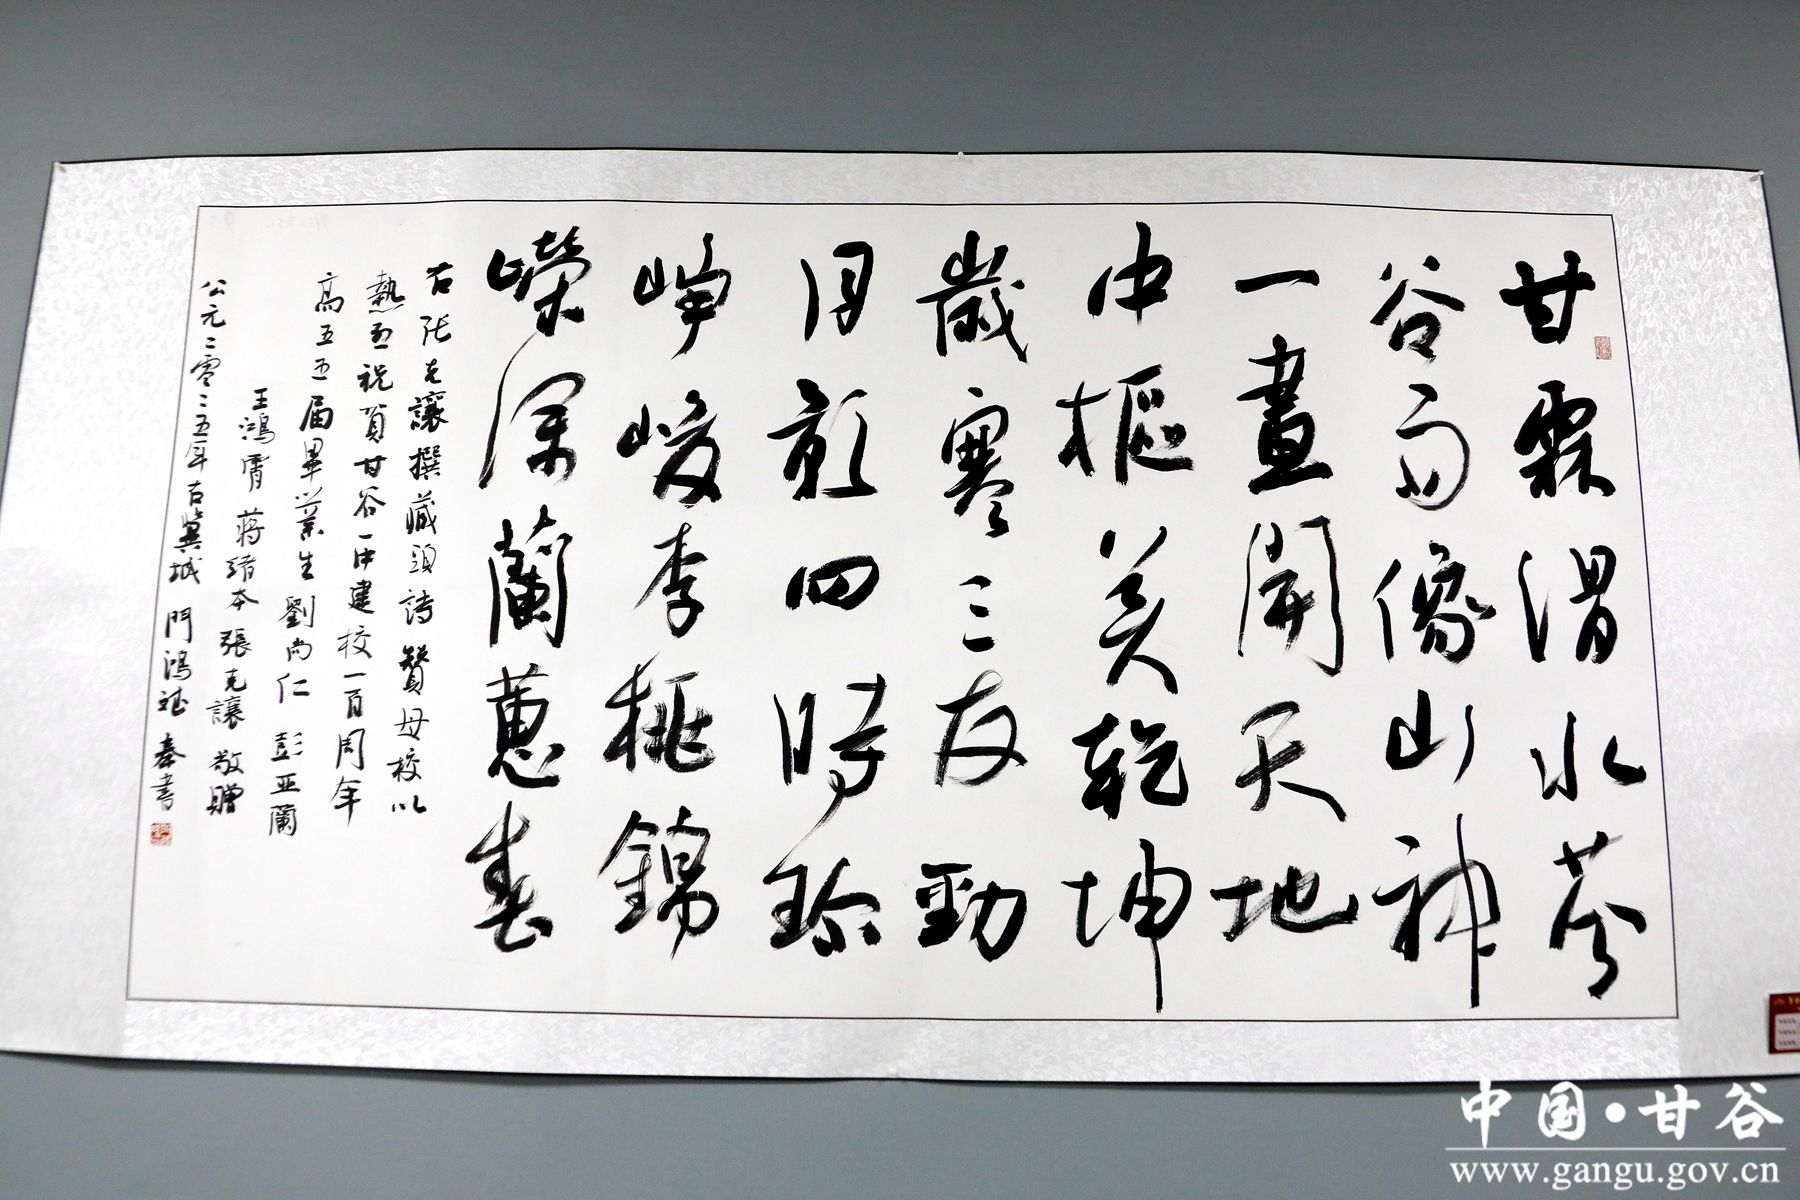 甘霖渭水芬
谷雨像山神
一畫開天地
中樞美乾坤
歲寒三友勁
月彩四時珍
崢峻李桃錦
嶸深蘭蕙春
右張克讓撰藏頭詩贊母校以
熱烈祝賀甘谷一中建校一百周年
高五五届畢業生劉尚仁 彭亞蘭
王鴻霄 蔣緒本 張克讓 敬贈
公元二零二五年古冀城 門鴻 奉書
中国·甘谷
www.gangu.gov.cn